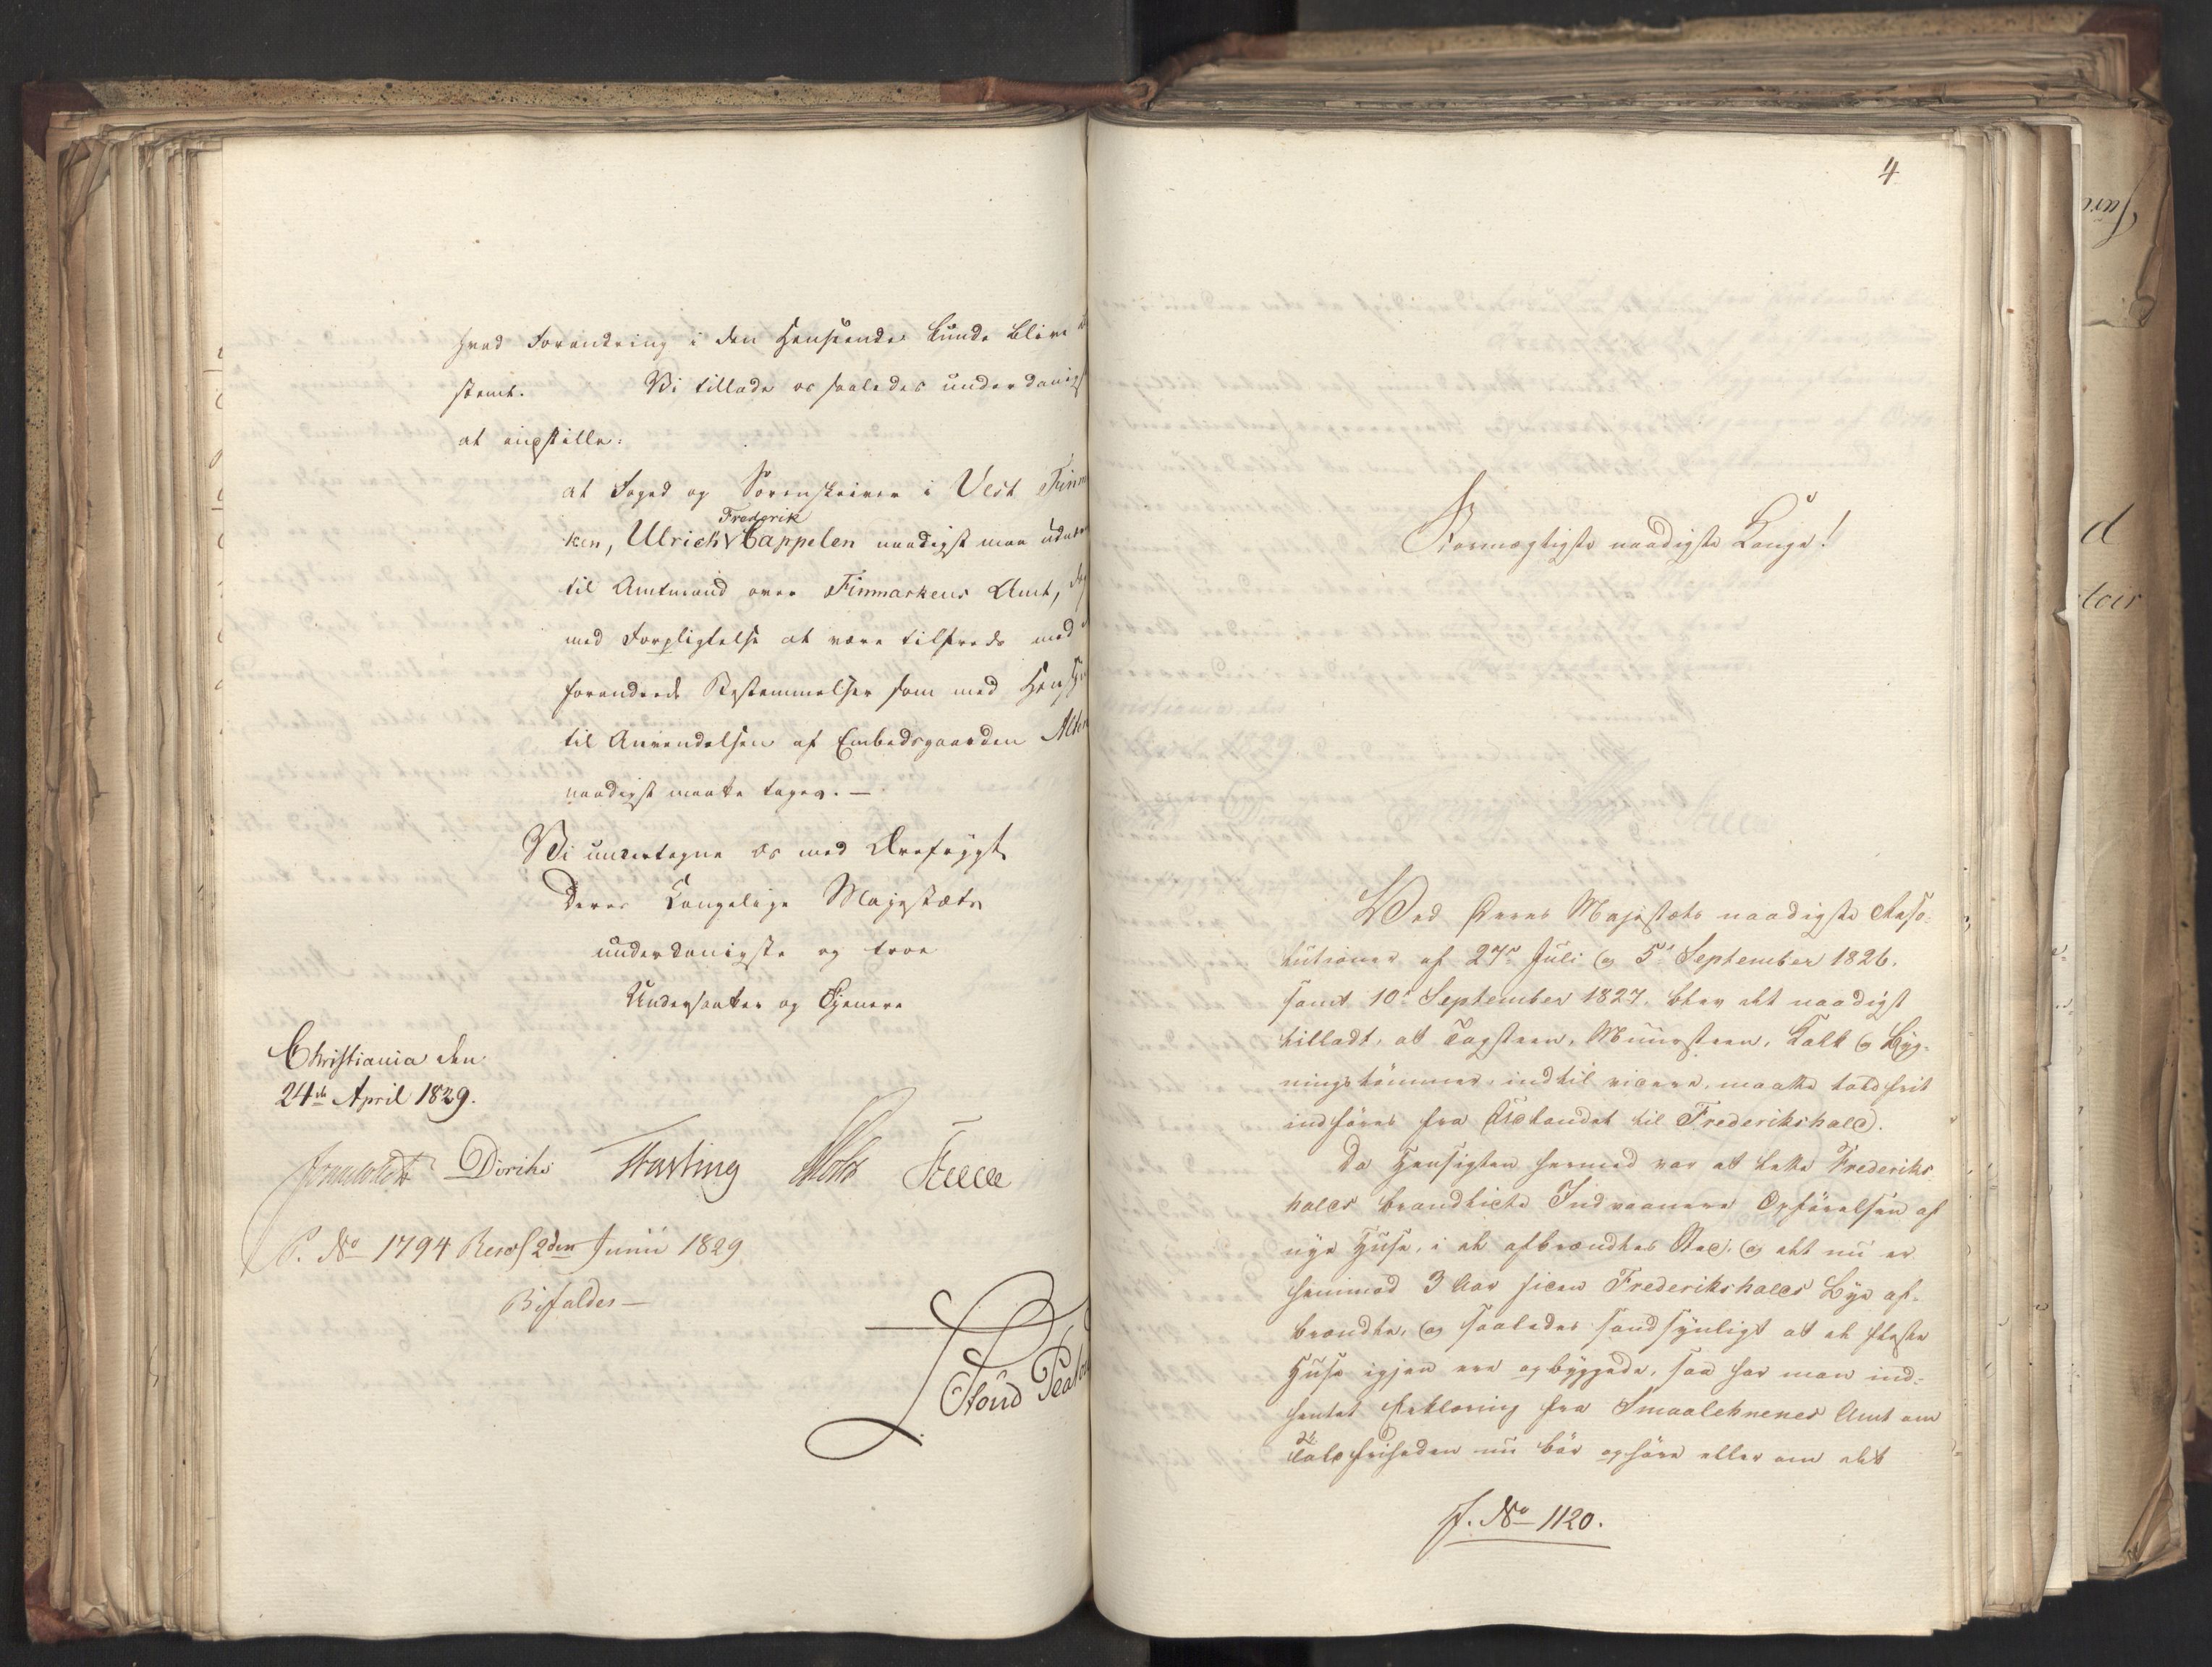 hvad Forandring i den Henseende kunde blive
stemt. Vi tillade os saaledes underdanigst
at indstille:
at Foged og Sorenskriver i Vest Finm
Frederik
ken, Ulrich Cappelen naadigst maa udn
til Amtmand over Finmarkens Amt,
med Forpligtelse at være tilfreds med
forandrede Bestemmelser som med Hensyn
til Anvendelsen af Embedsgaarden Alten
naadigst maatte tages. —
Vi undertegne os med Ærefrygt
Deres Kongelige Majestæts
underdanigste og troe
Undersaatter og Tjenere
Christiania den
24de April 1829.
Diriks Fasting Holst
P. No 1794 Resol 2den Junii 1829
Bifaldes —
4
Stormægtigste naadigste Konge!
Ved Deres Majestæts naadigste Reso-
lutioner af 27de Juli og 5te September 1826.
samt 10de September 1827. blev det naadigst
tilladt, at Tagsteen, Muursteen, Kalk og Byg-
ningstømmer, indtil videre, maatte toldfrit
indføres fra Udlandet til Frederikshald.
Da Hensigten hermed var at lette Frederiks
halds brandlidte Indvaanere Opførelsen af
nye Huse, i de afbrændtes Sted, og det nu er
henimod 3 Aar siden Frederikshalds Bye af-
brændte, og saaledes sandsynligt at de fleste
Huse igjen ere opbyggede, saa har man ind-
hentet Erklæring fra Smaalehnenes Amt om
Toldfriheden nu bør ophøre eller om det
J. No 1120.